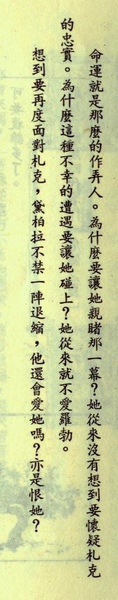 命運就是那麼的作弄人。為什麼要讓她親睹那一幕？她從來沒有想到要懷疑札克
的忠實。為什麼這種不幸的遭遇要讓她碰上？她從來就不愛羅勃。
想到要再度面對札克，黛柏拉不禁一陣退縮，他還會愛她嗎？亦是恨她？